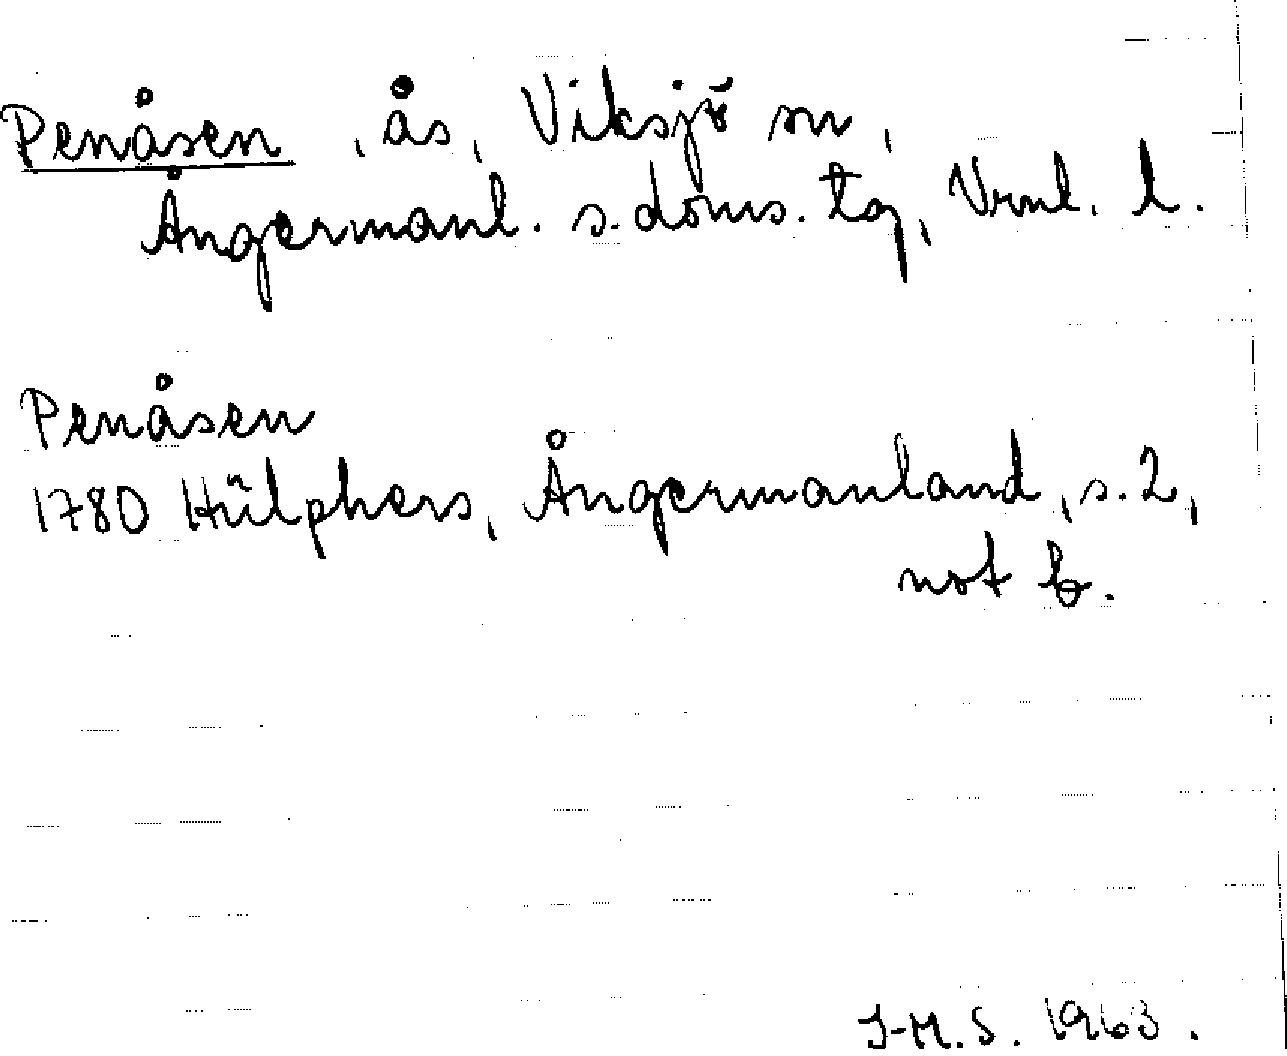 Penåsen, ås, Viksjö sn,
Ångermanl. s. doms. tg, Vrnl. l.
Penåsen
1780 Hülphers, Ångermanland, s. 2,
not b.
J-M.S. 1963.